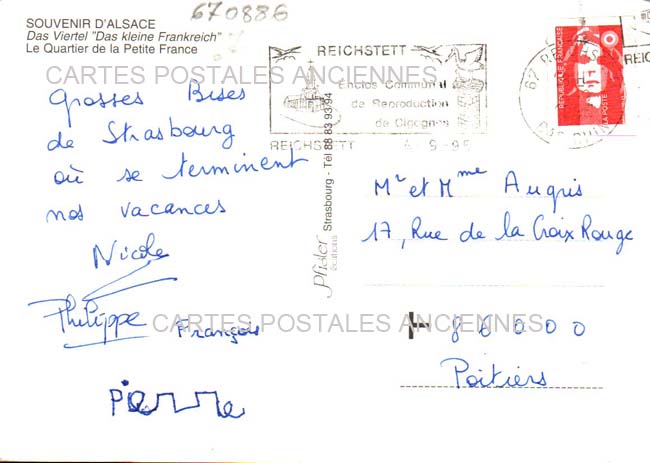 670886
SOUVENIR D'ALSACE
Das Viertel "Das kleine Frankreich"
Le Quartier de la Petite France
REICHSTETT
Enclos Communal
de Reproduction
de Cigognes
REICHSTETT
REPUBLIQUE FRANÇAISE
LA POSTE
67
BAS RHIN
REIC
CARTES POSTALES ANCIENNES
Grosses Bises
de Strasbourg
où se terminent
nos vacances
Nicole
Philippe
François
Pierre
Pfister
éditions
Strasbourg - Tél 88 83 93 94
Mr et Mme Augris
17, Rue de la Croix Rouge
CARTES POSTALES ANCIENNES
86000
Poitiers